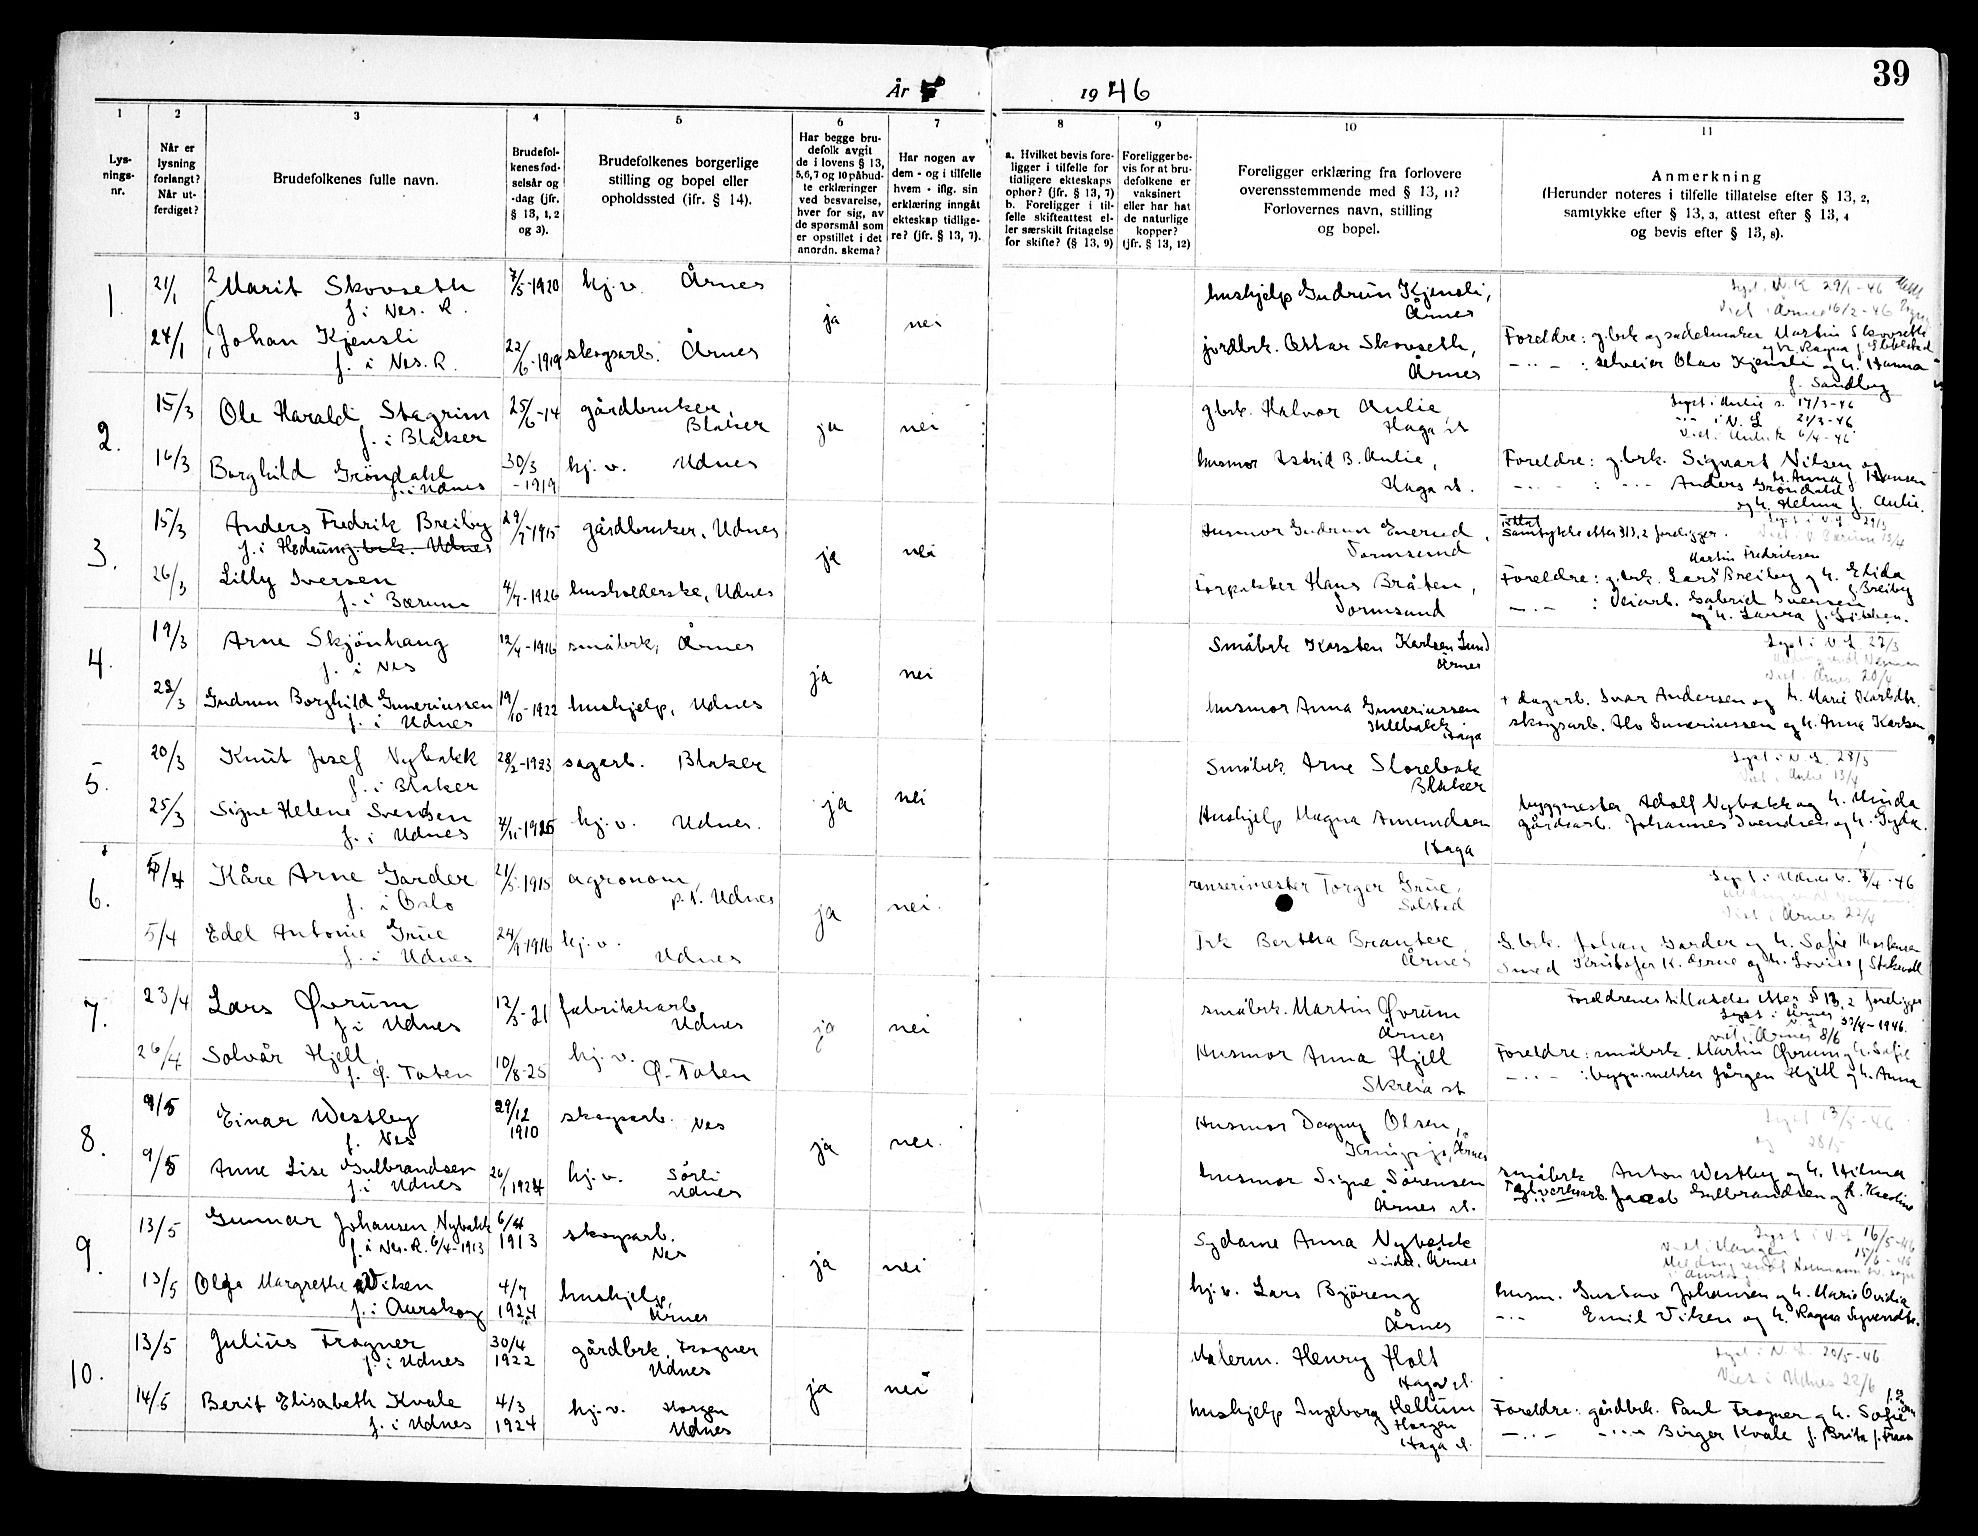 39
År 1946
1 2 3 4 5 6 7 8 9 10 11
Lys-
nings-
nr.
Når er
lysning
forlangt?
Når ut-
ferdiget?
Brudefolkenes fulle navn.
Brudefol-
kenes fød-
selsår og
-dag (jfr.
§ 13, 1, 2
og 3).
Brudefolkenes borgerlige
stilling og bopel eller
opholdssted (ifr. § 14).
Har begge bru-
defolk avgit
de i lovens § 13,
5,6,7 og 10 påbud-
te erklæringer
ved besvarelse,
hver for sig, av
de spørsmål som
er opstillet i det
anordn. skema?
Har nogen av
dem - og i tilfelle
hvem - iflg. sin
erklæring inngått
ekteskap tidlige-
re? (jfr. § 13, 7).
a. Hvilket bevis fore-
ligger i tilfelle for
tidligere ekteskaps
ophør? (jfr. § 13, 7)
b. Foreligger i til-
felle skifteattest el-
ler særskilt fritagelse
for skifte? (§ 13, 9)
Foreligger be-
vis for at bru-
defolkene er
vaksinert
eller har hat
de naturlige
kopper?
(jfr. § 13, 12)
Foreligger erklæring fra forlovere
overensstemmende med § 13, 11?
Forlovernes navn, stilling
og bopel.
Anmerkning
(Herunder noteres i tilfelle tillatelse efter § 13, 2,
samtykke efter § 13, 3, attest efter § 13, 4
og bevis efter § 13, 8).
1. 21/1 2 Marit Skovseth 7/5-1920 hj.v. Årnes ja nei hushjelp Gudrun Kjensli,
f. i Nes. R. Årnes
Lyst. N.K 29/1-46
Viet i Årnes 16/2-46
24/1 1 Johan Kjensli 22/6-1919 skogsarb. Årnes jordbrk. Ottar Skovseth,
f. i Nes. R. Årnes
Foreldre: g.brk og sadelmaker Martin Skovseth
og h. Ragna f.
-"- : selveier Olav Kjensli og h. Hanna
f. Sandby
2. 15/3 Ole Harald Stagrim 25/6-14 gårdbruker, ja nei gbrk. Halvor Aulie,
f. i Blaker Blaker Haga st
Lyst i Aulie s. 17/3-46
-"- i N. L 21/3-46
Viet. Auli k 6/4-46
16/3 Borghild Gröndahl 30/3-1919 hj.v. Udnes husmor Astrid B. Aulie,
f. i Udnes Haga st.
Foreldre: g.brk. Sigvart Nilsen og
h. Anna f Hansen
-"- : -"- Anders Gröndahl
og h. Helma f. Aulie.
3. 15/3 Anders Fredrik Breiby 29/7-1915 gårdbruker, Udnes ja nei Husmor Gudrun Enerud,
f. i Hedrum g.brk. Udnes Vormsund
Samtykke etter §13,2 foreligger.
26/3 Lilly Iversen 4/7-1926 husholderske, Udnes Torpekter Hans Bråten,
f. i Bærum Vormsund
Martin Fredriksen
Foreldre: g.brk. Lars Breiby og h. Elida
f Breiby
-"- : Veiarb. Gabriel Iversen
og h. Laura f.
4. 19/3 Arne Skjönhaug 12/4-1916 småbrk, Årnes ja nei Småbrk Karsten Karlsen Lund
f. i Nes Årnes
Lyst i N. L. 22/3
Viet. Årnes 20/4
28/3 Gudrun Borghild Guneriussen 19/10-1922 hushjelp, Udnes husmor Anna Guneriussen
f. i Udnes Haga
+ dagarb. Ivar Andersen og h. Marie Karlsdtr.
skogsarb. Alo Guneriussen og h. Anna Karlsen
5. 20/3 Knut Josef Nybakk 28/2-1923 sagarb. Blaker ja nei Småbrk. Arne Storebak
f. i Blaker Blaker
Lyst i N. L. 28/3
Viet i Aulie 13/4
25/3 Signe Helene Svendsen 7/11-1925 hj.v. Udnes. Hushjelp Magna Amundsen
f. i Udnes Haga
byggmester Adolf Nybakk og h. Minda
gårdsarb. Johannes Svendsen og h. Gyda.
6. 5/4 Kåre Arne Garder 21/5-1915 agronom, ja nei. renserimester Torger Grue,
f. i Oslo p.t. Udnes
Lyst i Udnes k. 7/4-46
Viet i Årnes 22/4
5/4 Edel Antonie Grue 24/9-1916 hj.v. Frk Bertha Branter,
f. i Udnes Udnes Årnes
G.brk. Johan Garder og h. Sofie Mortensen
Smed Kristofer K. Grue og h. Lovise f
7. 23/4 Lars Øvrum 12/3-21 fabrikkarb ja nei småbrk. Martin Øvrum
f i Udnes Udnes Årnes
Foreldrenes tillatelse etter § 13,2 foreligger
Lyst i Årnes 30/4-1946.
viet i Årnes 8/6
26/4 Solvår Hjell, 10/8-25 hj.v. Husmor Anna Hjell
f. Ø. Toten Ø. Toten Skreia st
Foreldre: småbrk. Martin Øvrum og h. Sofie
-"- : byggm.mekker Jörgen Hjell og h. Anna
8. 9/5 Einar Westby 29/12 1910 skogsarb. Nes ja nei. Husmor Dagny Olsen,
f. Nes Årnes
Lyst 13/5-46
og 28/5
9/5 Anne Lise Gulbrandsen 26/1 1924 hj.v. Sörli husmor Signe Sörensen
f. i Udnes Udnes Årnes st.
småbrk Anton Westby og h. Hilma
Teglverksarb. Jacob Gulbrandsen og h. Karoline
9. 13/5 Gunnar Johansen Nybakk 6/4 1913 skogsarb. ja nei Sydame Anna Nybakk
f. i Nes. R. 6/4-1913 Nes Årnes
Lyst i N.L 16/5-46
Viet i Mangen 15/6-46
i Aurskog
13/5 Olga Margrethe Viken 4/7 1924 hushjelp, hj.v. Lars Björeng
f. i Aurskog Årnes Årnes
husm. Gustav Johansen og h. Marie Ovidia
-"- Emil Viken og h. Ragna Syversdtr.
10. 13/5 Julius Frogner 30/4 1922 gårdbrk. Frogner ja nei Malerm. Henry Holt
f. i Udnes Udnes Haga st.
Lyst i N. L. 20/5-46
Viet i Udnes 22/6
14/5 Berit Elisabeth Kvale 4/3 1924 hj.v. Horgen hushjelp Ingeborg Hellum
f. i Udnes Udnes Horgen
Haga st.
Foreldre: gårdbrk. Paul Frogner og h. Sofie
-"- -"- Birger Kvale f. Brita f.